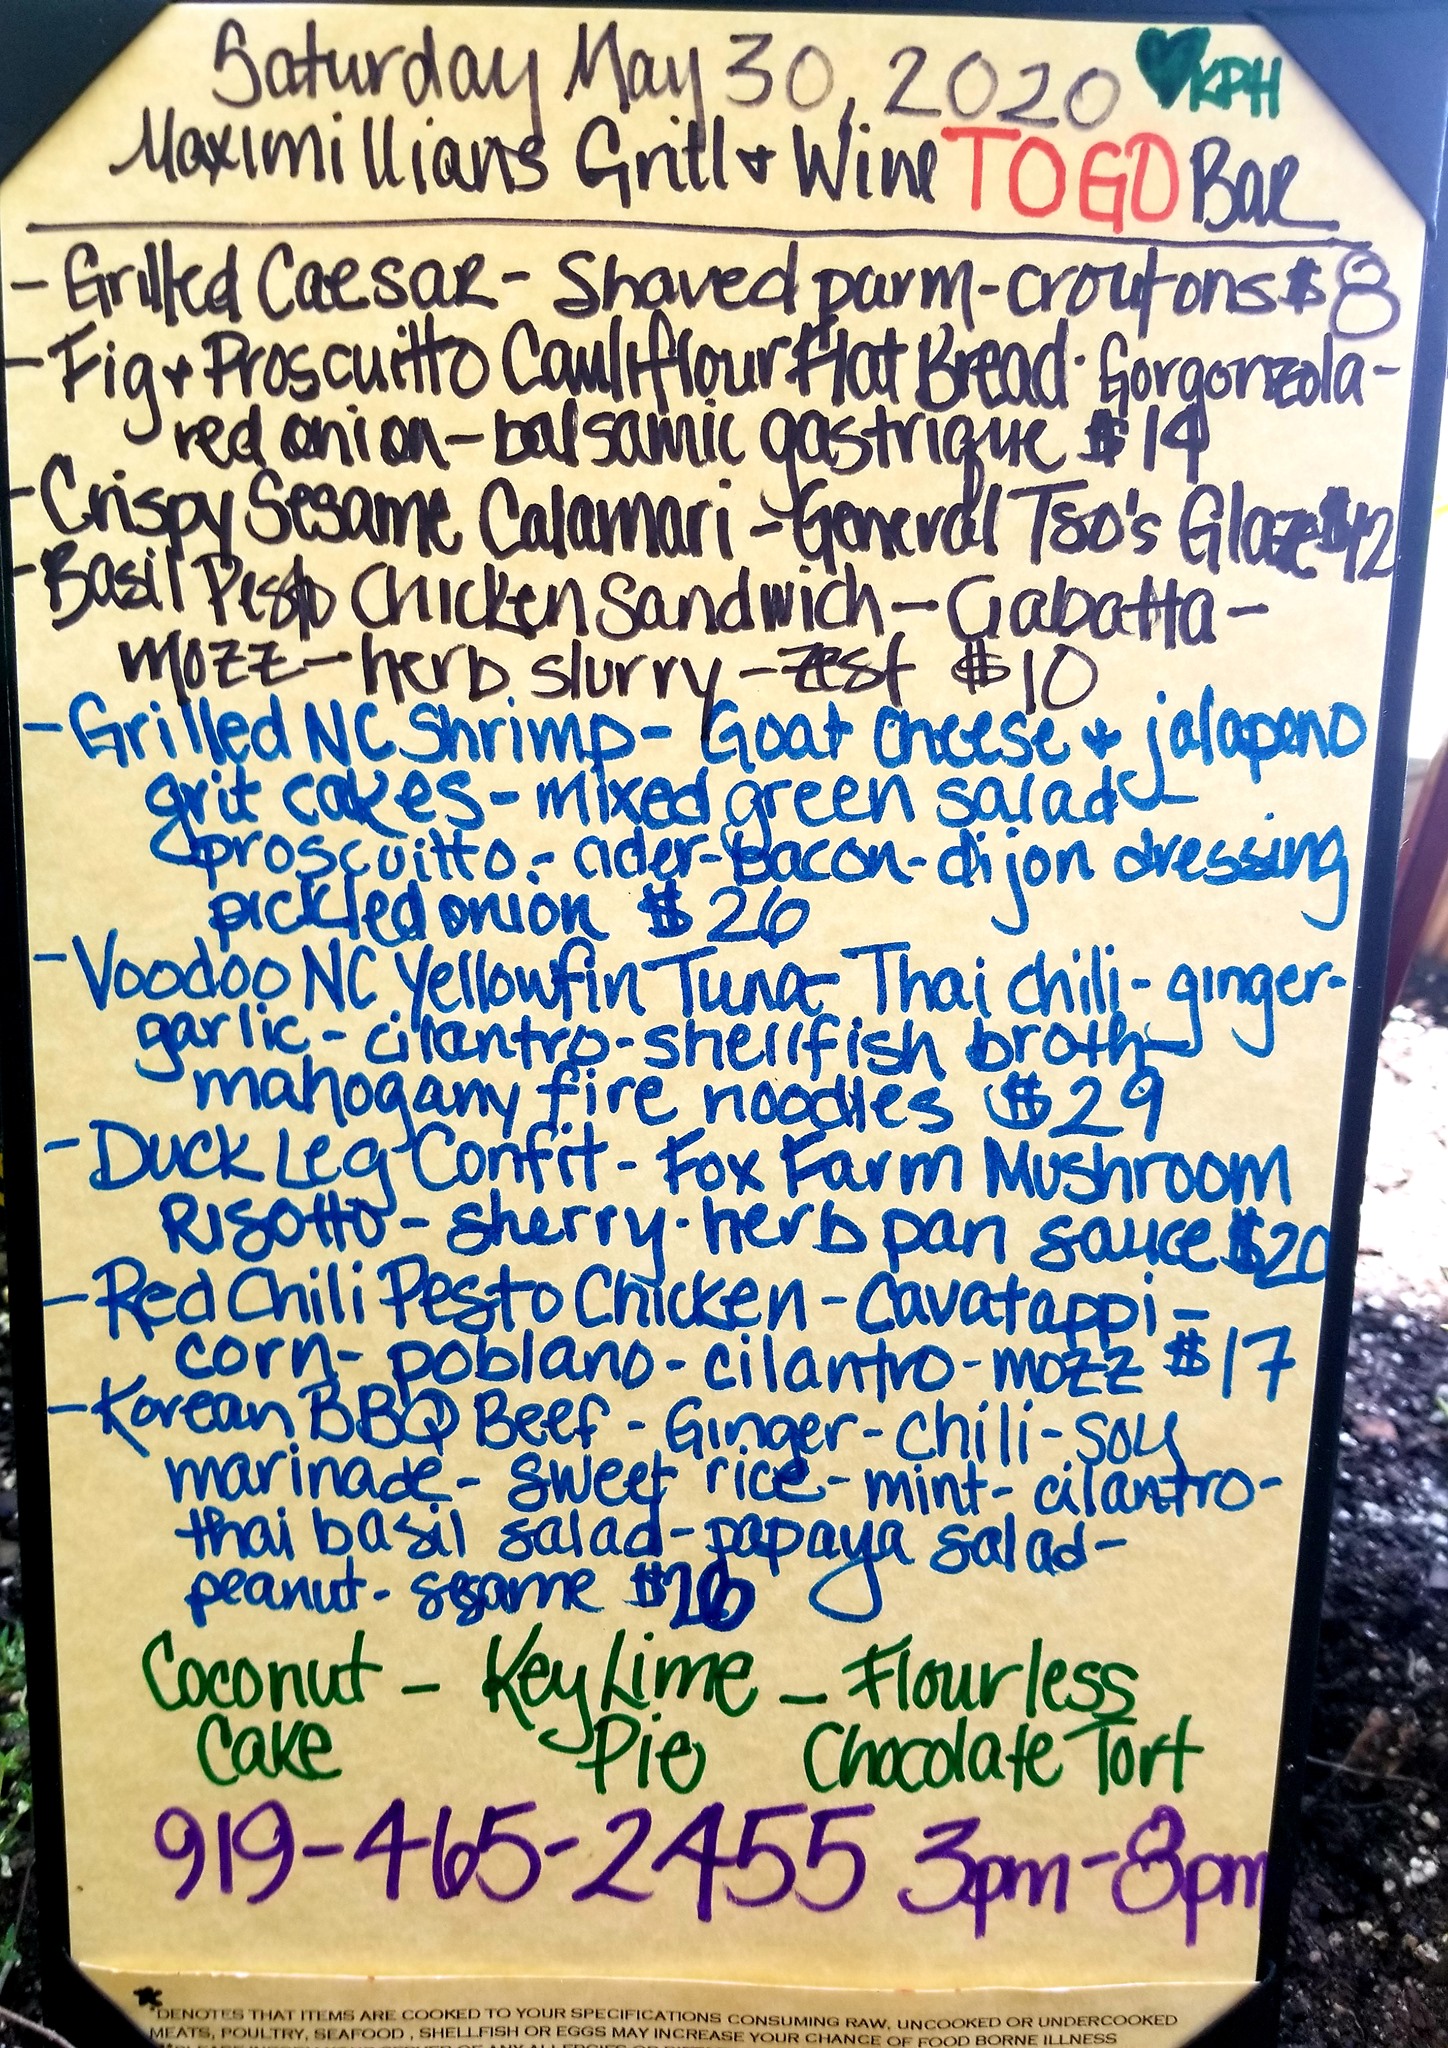 Saturday May 30, 2020 KPH
Maximillians Grill + Wine TO GO Bar
- Grilled Caesar - Shaved parm - croutons $8
- Fig + Proscuitto Cauliflour Flat Bread - Gorgonzola -
red onion - balsamic gastrique $14
- Crispy Sesame Calamari - General Tso's Glaze $12
- Basil Pesto Chicken Sandwich - Ciabatta -
mozz - herb slurry - zest $10
- Grilled NC Shrimp - Goat cheese + jalapeno
grit cakes - mixed green salad
proscuitto - cider-bacon-dijon dressing
pickled onion $26
- Voodoo NC Yellowfin Tuna - Thai chili - ginger -
garlic - cilantro - shellfish broth -
mahogany fire noodles $29
- Duck Leg Confit - Fox Farm Mushroom
Risotto - sherry - herb pan sauce $20
- Red Chili Pesto Chicken - Cavatappi -
corn - poblano - cilantro - mozz $17
- Korean BBQ Beef - Ginger - chili - soy
marinade - sweet rice - mint - cilantro -
thai basil salad - papaya salad -
peanut - sesame $26
Coconut - Key Lime - Flourless
Cake Pie Chocolate Tort
919-465-2455 3pm-8pm
*DENOTES THAT ITEMS ARE COOKED TO YOUR SPECIFICATIONS CONSUMING RAW, UNCOOKED OR UNDERCOOKED
MEATS, POULTRY, SEAFOOD , SHELLFISH OR EGGS MAY INCREASE YOUR CHANCE OF FOOD BORNE ILLNESS